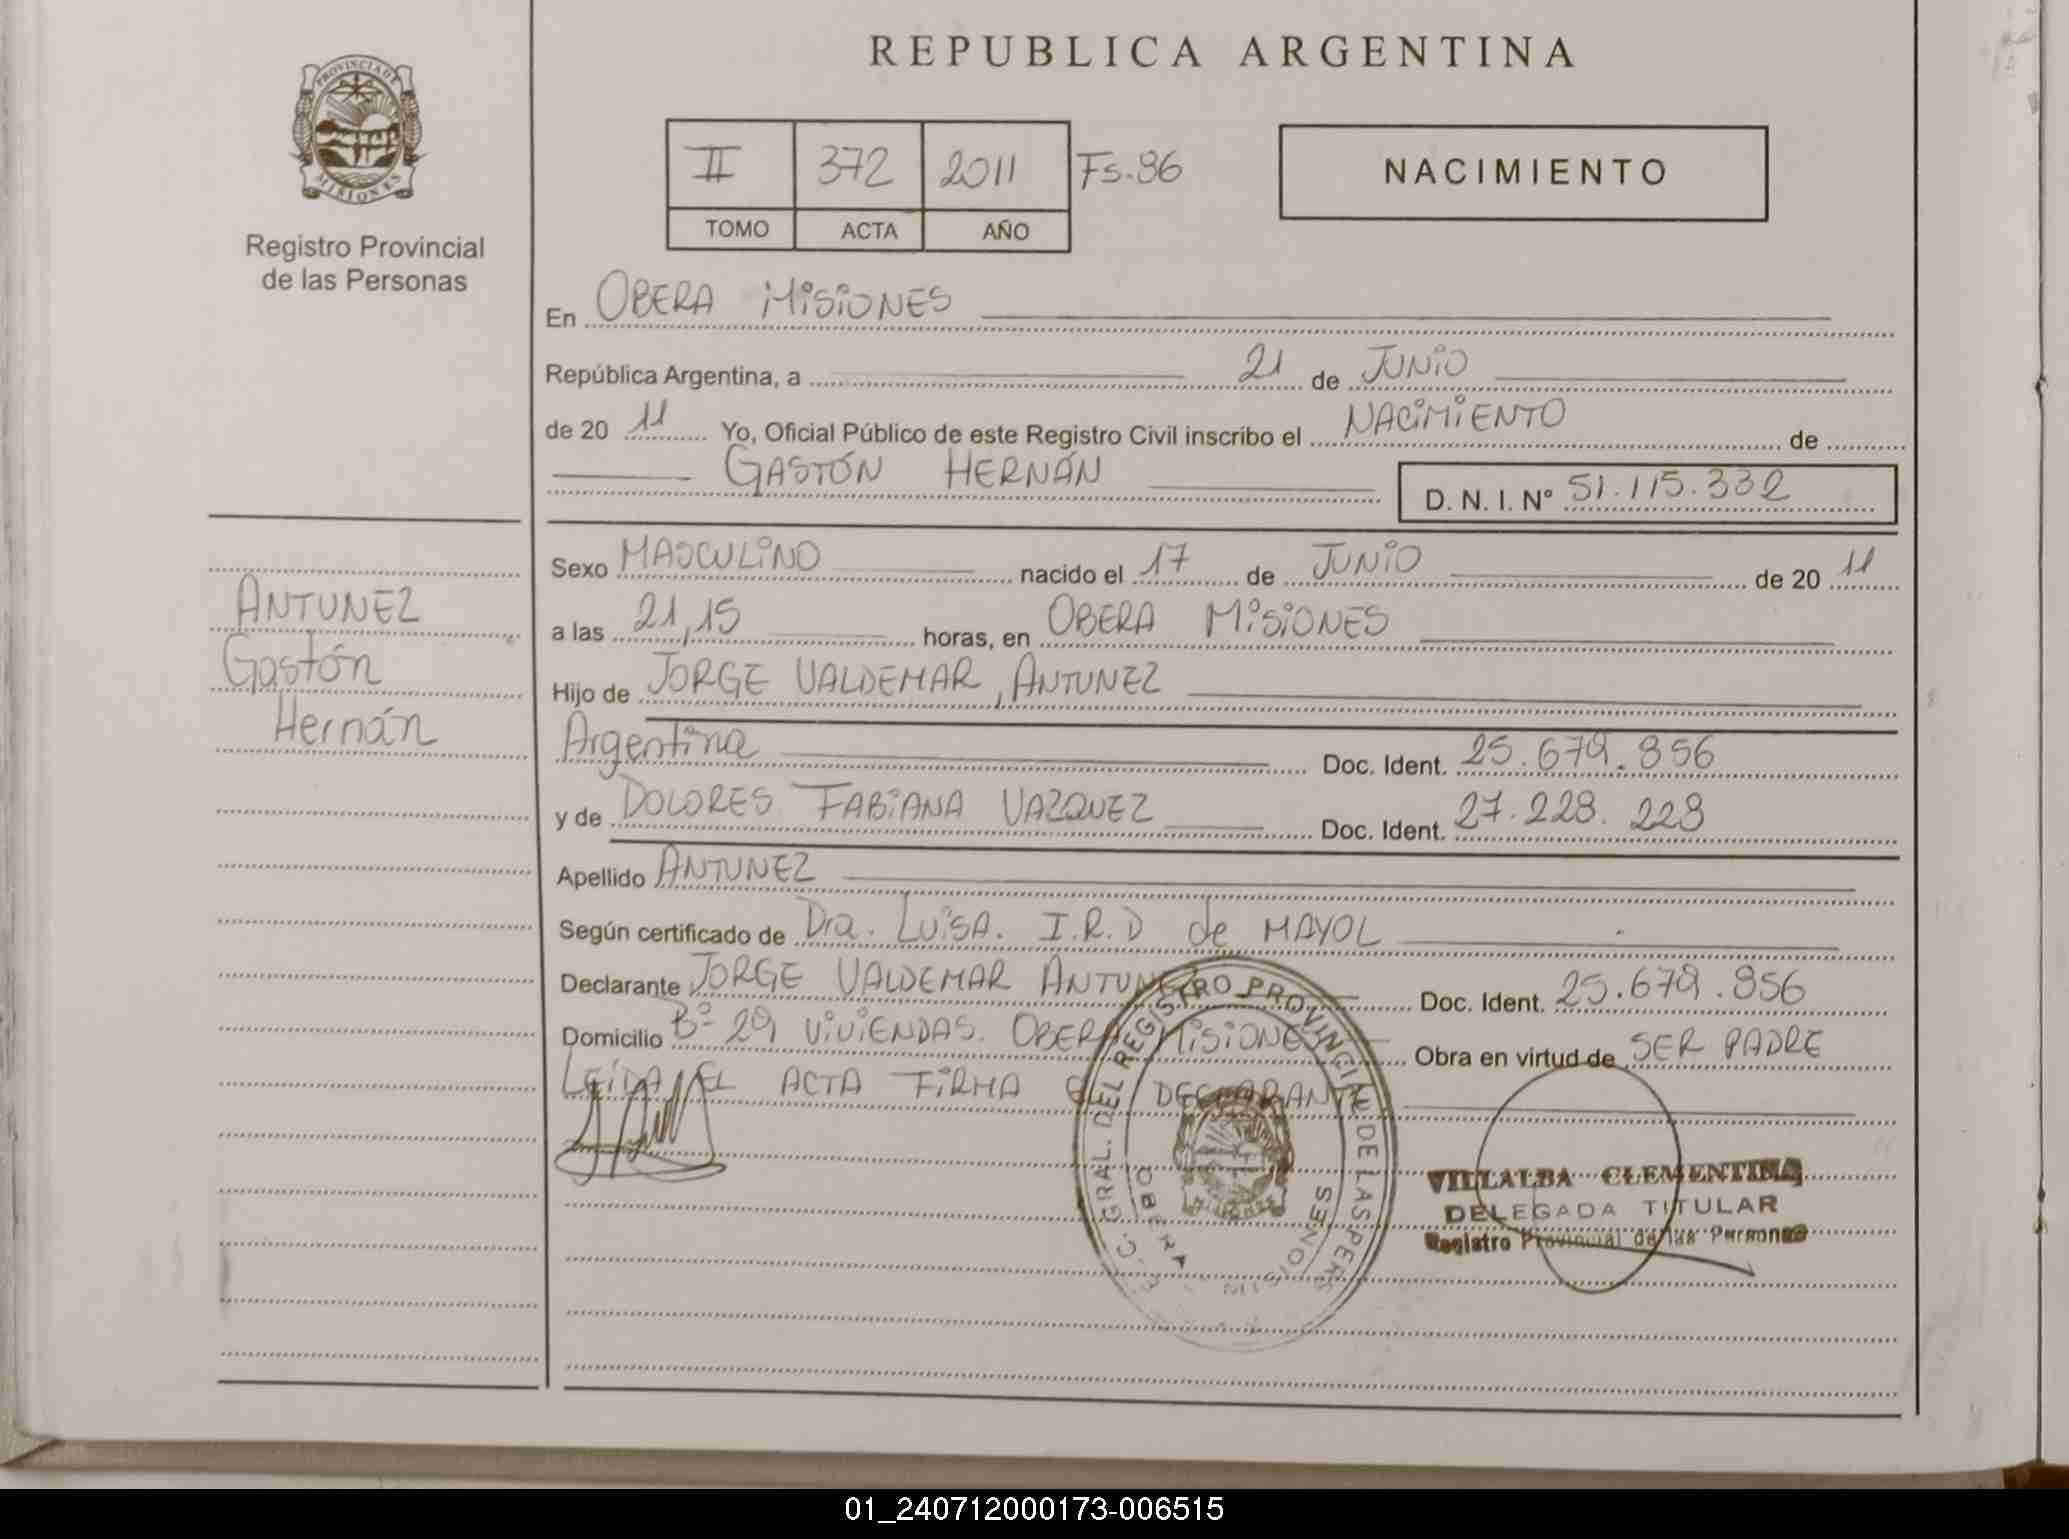 PROVINCIA DE
MISIONES
Registro Provincial
de las Personas
ANTUNEZ
Gastón
Hernán
REPUBLICA ARGENTINA
II 372 2011 Fs. 86
TOMO ACTA AÑO
NACIMIENTO
En OBERA MISIONES
República Argentina, a 21 de JUNIO
de 20 11 Yo, Oficial Público de este Registro Civil inscribo el NACIMIENTO de
GASTÓN HERNÁN D. N. I. Nº 51.115.332
Sexo MASCULINO nacido el 17 de JUNIO de 20 11
a las 21,15 horas, en OBERA MISIONES
Hijo de JORGE VALDEMAR, ANTUNEZ
Argentina Doc. Ident. 25.679.856
y de DOLORES FABIANA VAZQUEZ Doc. Ident. 27.228.228
Apellido ANTUNEZ
Según certificado de Dra. LUISA. I.R.D de MAYOL
Declarante JORGE VALDEMAR ANTUNEZ Doc. Ident. 25.679.856
Domicilio Bº 29 VIVIENDAS. OBERA MISIONES Obra en virtud de SER PADRE
LEÍDA EL ACTA FIRMA EL DECLARANTE
GRAL. DEL REGISTRO PROVINCIAL DE LAS PERS
OBERA MISIONES
VILLALBA CLEMENTINA
DELEGADA TITULAR
Registro Provincial de las Personas
01_240712000173-006515